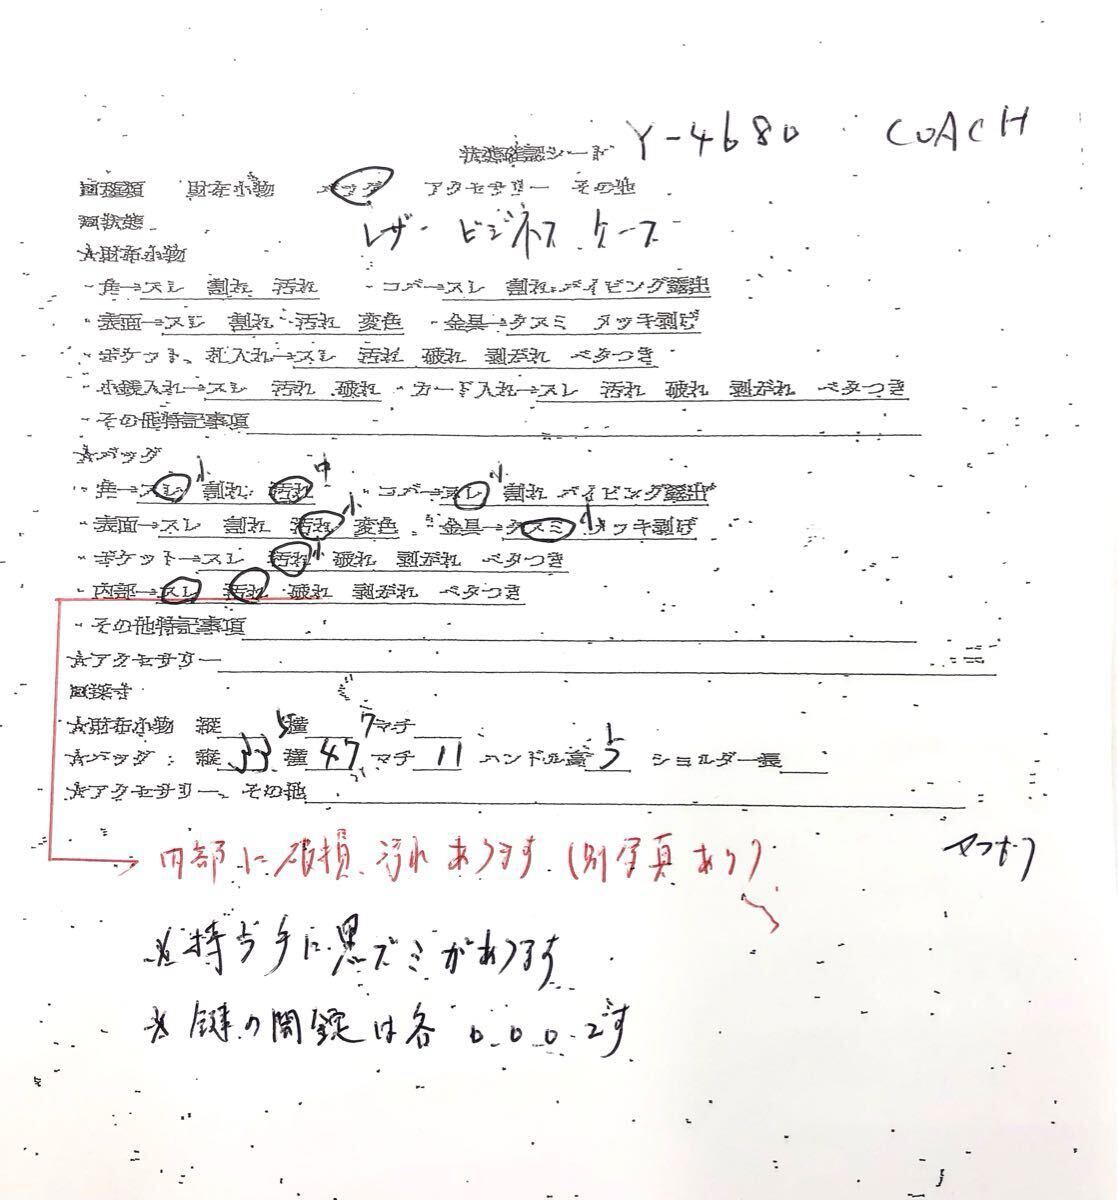 状態確認シート Y-4680 COACH
■種類 財布小物 バッグ アクセサリー その他
■状態 レザー ビジネス ケース
★財布小物
・角→スレ 割れ 汚れ ・コバ→スレ 割れ パイピング露出
・表面→スレ 割れ 汚れ 変色 ・金具→クスミ メッキ剥げ
・ポケット、札入れ→スレ 汚れ 破れ 剥がれ ベタつき
・小銭入れ→スレ 汚れ 破れ ・カード入れ→スレ 汚れ 破れ 剥がれ ベタつき
・その他特記事項
★バッグ
・角→スレ小 割れ 汚れ中 ・コバ→スレ小 割れ パイピング露出
・表面→スレ 割れ 汚れ小 変色 ・金具→クスミ小 メッキ剥げ
・ポケット→スレ 汚れ小 破れ 剥がれ ベタつき
・内部→スレ 汚れ 破れ 剥がれ ベタつき
・その他特記事項
★アクセサリー
■採寸
★財布小物 縦 横 マチ
★バッグ: 縦 33 横 47 マチ 11 ハンドル高 5 ショルダー長
★アクセサリー、その他
→ 内部に破損、汚れあります(別写真あり)
※持ち手に黒ズミがあります
※鍵の開錠は各 0.0.0.です